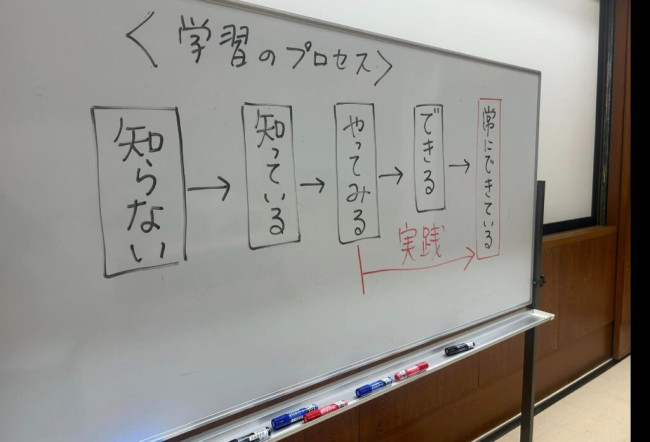 ＜学習のプロセス＞
知らない
→
知っている
→
やってみる
→
できる
→
常にできている
実践